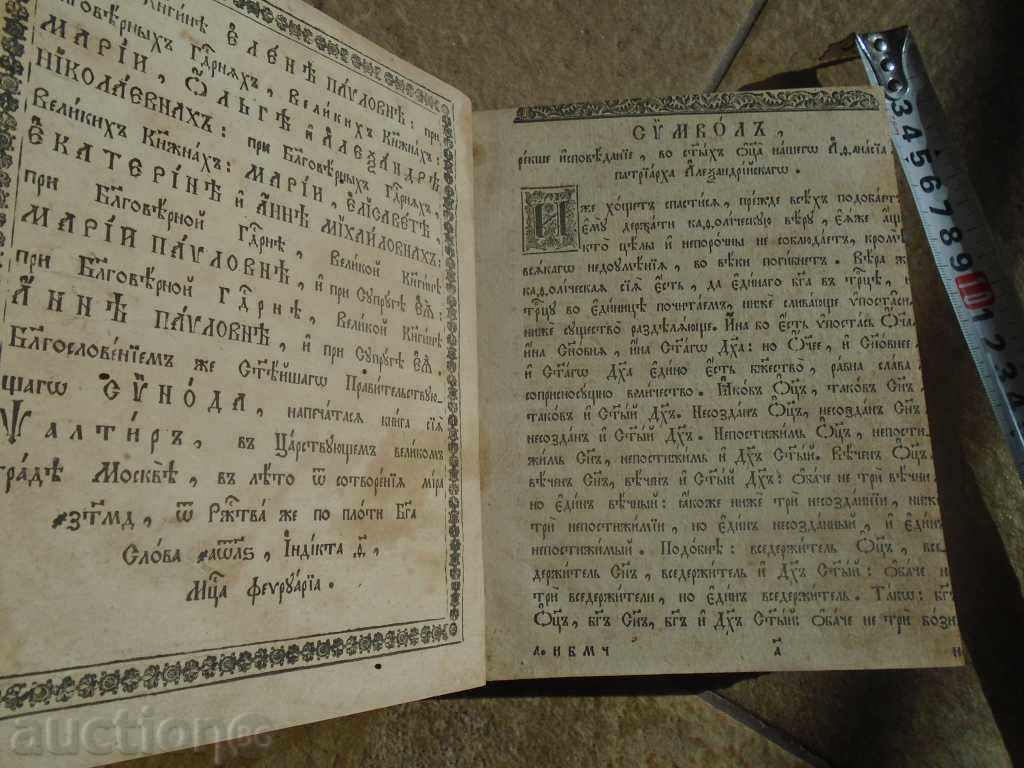 Кнгинѣ Єленѣ Паѵловнѣ: при
Благовѣрныхъ Гдⷭ҇рняхъ, Великихъ Кнжнахъ:
МАРІИ, Ѻльгѣ и҆ А҆леѯандрѣ
НІКОЛАЕВНАХЪ: при Бл҃говѣрныхъ Гдⷭ҇рняхъ,
Великихъ Кнжнахъ: МАРІИ, Єлісаветѣ,
Є҆КАТЕРІНѢ и҆ А҆ннѣ МІХАИЛОВНАХЪ:
при Бл҃говѣрной Гдⷭ҇рнѣ, Великой Кнгинѣ
МАРІИ ПАѴЛОВНѢ, и҆ при Сꙋпрꙋгѣ є҆ѧ̀:
при Бл҃говѣрной Гдⷭ҇рнѣ, Великой Кнгинѣ
А҆ННѢ ПАѴЛОВНѢ, и҆ при Сꙋпрꙋгѣ є҆ѧ̀.
Бл҃гословенїемъ же Ст҃ѣйшагѡ Правительствꙋю-
щагѡ СѴНОДА, напечатасѧ книга сїѧ̀
Ѱалтирь, въ Царствꙋющемъ великомъ
градѣ Москвѣ, въ лѣто ѿ сотворенїѧ мїра
҂зтмд, ѿ Ржⷭ҇тва же по плоти Бг҃а
Слова ҂аѡлѕ, Індїкта ѳ,
Мцⷭ҇а феврꙋарїа.
СѴМВОЛЪ,
рекше и҆сповѣданїе, во ст҃ыхъ ѻ҆ц҃а нашегѡ А҆ѳанасїа
патрїарха А҆леѯандрїйскагѡ.
И҆же хощетъ спастисѧ, прежде всѣхъ подобаетъ
є҆мꙋ держати каѳолическꙋю вѣрꙋ, є҆ѧже аще
кто цѣлы и҆ непорочны не соблюдаетъ, кромѣ
всѧкагѡ недоꙋмѣнїѧ, во вѣки погибнетъ. Вѣра ж
каѳолическаѧ сїѧ̀ є҆сть, да є҆динаго бг҃а въ трⷪ҇цѣ, и҆
трⷪ҇цꙋ во є҆диницѣ почитаемъ, ниже сливающе ѵ҆постаси
ниже сꙋщество раздѣлѧюще. И҆на бо є҆сть ѵ҆постась Ѻ҆ч҃а
и҆на Сн҃овнѧ, и҆на Ст҃агѡ Дх҃а: но Ѻ҆ч҃ее, и҆ Сн҃овнее
и҆ Ст҃агѡ Дх҃а є҆дино є҆сть бж҃ество, равна слава
соприсносꙋщно величество. Ꙗ҆ковъ Ѻ҆ц҃ъ, таковъ Сн҃ъ
таковъ и҆ Ст҃ый Дх҃ъ. Несозданъ Ѻ҆ц҃ъ, несозданъ Сн҃ъ
несозданъ и҆ Ст҃ый Дх҃ъ. Непостижимь Ѻ҆ц҃ъ, непости-
жимь Сн҃ъ, непостижимь и҆ Дх҃ъ Ст҃ый. Вѣченъ Ѻ҆ц҃ъ
вѣченъ Сн҃ъ, вѣченъ и҆ Ст҃ый Дх҃ъ: ѻ҆баче не трѝ вѣчни
но є҆динъ вѣчный: ꙗ҆коже ниже трѝ несозданнїи, ниже
трѝ непостижимїи, но є҆динъ несозданный, и҆ є҆динъ
непостижимый. Подобнѣ: вседержитель Ѻ҆ц҃ъ, все
держитель Сн҃ъ, вседержитель и҆ Дх҃ъ Ст҃ый: ѻ҆баче н
трѝ вседержители, но є҆динъ вседержитель. Такѡ: бг҃ъ
Ѻ҆ц҃ъ, бг҃ъ Сн҃ъ, бг҃ъ и҆ Дх҃ъ Ст҃ый: ѻ҆баче не трѝ бозн
а҃ и в м ч а҃ но
3 4 5 6 7 8 9 10 1 2 3 4
auction